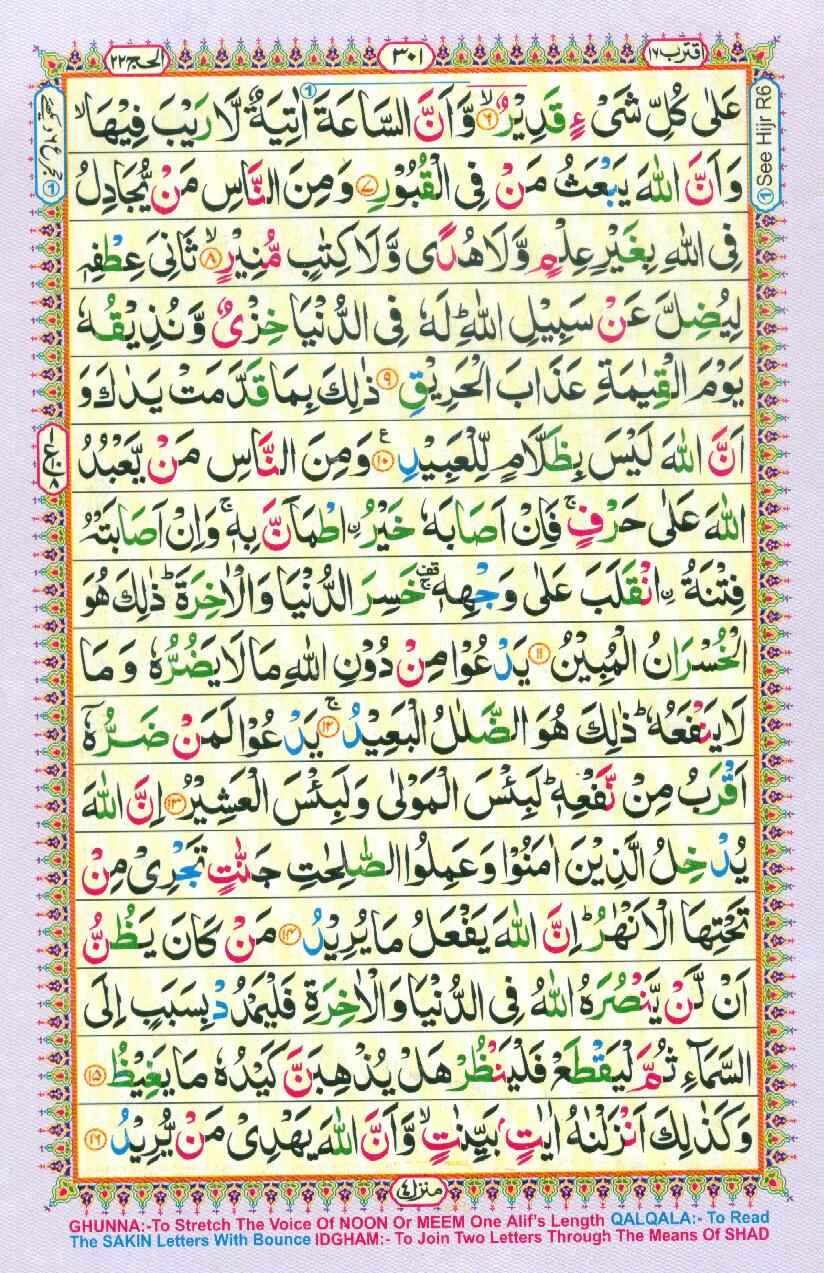 الحج ٢٢
٣٠١
اقترب ١٧
عَلٰى كُلِّ شَىْءٍ قَدِيْرٌ ۙ﴿۶﴾ وَّاَنَّ السَّاعَةَ اٰتِيَةٌ لَّا رَيْبَ فِيْهَا ۙ
وَاَنَّ اللّٰهَ يَبْعَثُ مَنْ فِى الْقُبُوْرِ ﴿۷﴾ وَمِنَ النَّاسِ مَنْ يُّجَادِلُ
فِى اللّٰهِ بِغَيْرِ عِلْمٍ وَّلَا هُدًى وَّلَا كِتٰبٍ مُّنِيْرٍ ۙ﴿۸﴾ ثَانِىَ عِطْفِهٖ
لِيُضِلَّ عَنْ سَبِيْلِ اللّٰهِ ؕ لَهٗ فِى الدُّنْيَا خِزْىٌ وَّنُذِيْقُهٗ
يَوْمَ الْقِيٰمَةِ عَذَابَ الْحَرِيْقِ ﴿۹﴾ ذٰلِكَ بِمَا قَدَّمَتْ يَدٰكَ وَ
اَنَّ اللّٰهَ لَيْسَ بِظَلَّامٍ لِّلْعَبِيْدِ ﴿۱۰﴾ۧ وَمِنَ النَّاسِ مَنْ يَّعْبُدُ
اللّٰهَ عَلٰى حَرْفٍ ۚ فَاِنْ اَصَابَهٗ خَيْرُ ۨاطْمَاَنَّ بِهٖ ۚ وَاِنْ اَصَابَتْهُ
فِتْنَةُ ۨانْقَلَبَ عَلٰى وَجْهِهٖ ۚقف خَسِرَ الدُّنْيَا وَالْاٰخِرَةَ ؕ ذٰلِكَ هُوَ
الْخُسْرَانُ الْمُبِيْنُ ﴿۱۱﴾ يَدْعُوْا مِنْ دُوْنِ اللّٰهِ مَا لَا يَضُرُّهٗ وَمَا
لَا يَنْفَعُهٗ ؕ ذٰلِكَ هُوَ الضَّلٰلُ الْبَعِيْدُ ۚ﴿۱۲﴾ يَدْعُوْا لَمَنْ ضَرُّهٗۤ
اَقْرَبُ مِنْ نَّفْعِهٖ ؕ لَبِئْسَ الْمَوْلٰى وَلَبِئْسَ الْعَشِيْرُ ﴿۱۳﴾ اِنَّ اللّٰهَ
يُدْخِلُ الَّذِيْنَ اٰمَنُوْا وَعَمِلُوا الصّٰلِحٰتِ جَنّٰتٍ تَجْرِىْ مِنْ
تَحْتِهَا الْاَنْهٰرُ ؕ اِنَّ اللّٰهَ يَفْعَلُ مَا يُرِيْدُ ﴿۱۴﴾ مَنْ كَانَ يَظُنُّ
اَنْ لَّنْ يَّنْصُرَهُ اللّٰهُ فِى الدُّنْيَا وَالْاٰخِرَةِ فَلْيَمْدُدْ بِسَبَبٍ اِلَى
السَّمَآءِ ثُمَّ لْيَقْطَعْ فَلْيَنْظُرْ هَلْ يُذْهِبَنَّ كَيْدُهٗ مَا يَغِيْظُ ﴿۱۵﴾
وَكَذٰلِكَ اَنْزَلْنٰهُ اٰيٰتٍۭ بَيِّنٰتٍ ۙ وَّاَنَّ اللّٰهَ يَهْدِىْ مَنْ يُّرِيْدُ ﴿۱۶﴾
① See Hijr R6
منزل ٤
GHUNNA:-To Stretch The Voice Of NOON Or MEEM One Alif's Length QALQALA:- To Read
The SAKIN Letters With Bounce IDGHAM:- To Join Two Letters Through The Means Of SHAD